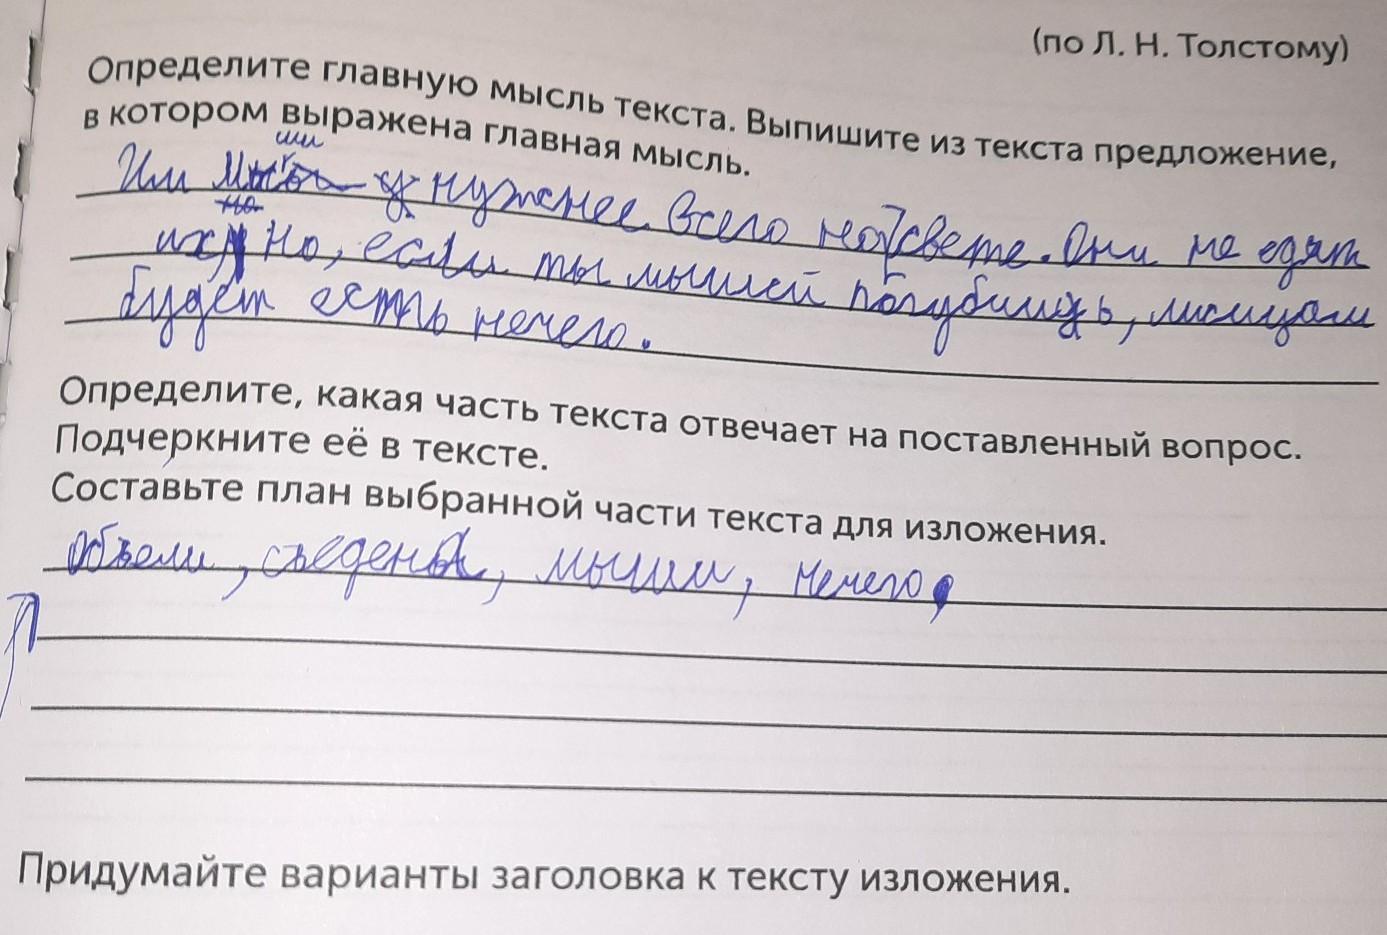 (по Л. Н. Толстому)
Определите главную мысль текста. Выпишите из текста предложение,
в котором выражена главная мысль.
Им мыши нужнее всего на свете. Они не едят
их. Но, если ты мышей погубишь, лисицам
будет есть нечего.
Определите, какая часть текста отвечает на поставленный вопрос.
Подчеркните её в тексте.
Составьте план выбранной части текста для изложения.
Объели, съедены, мыши, нечего,
Придумайте варианты заголовка к тексту изложения.